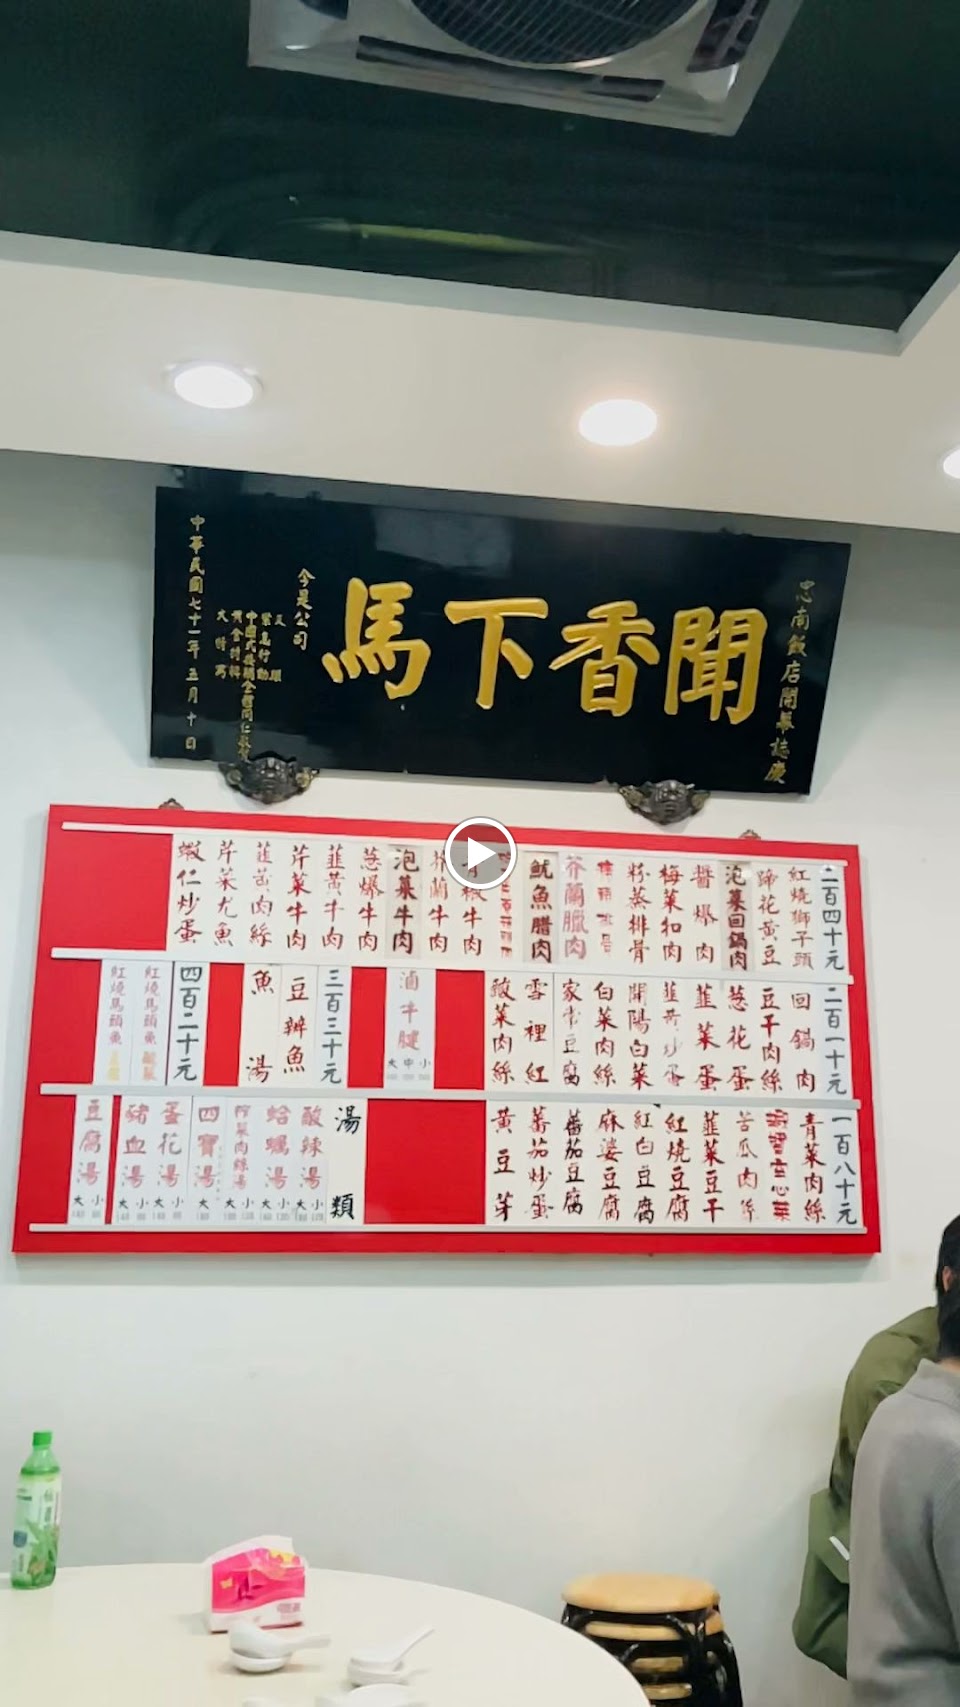 忠南飯店開幕誌慶
聞香下馬
今是公司
中華民國七十一年五月十日
二百四十元
紅燒獅子頭
蹄花黃豆
泡菜回鍋肉
醬爆肉
梅菜扣肉
粉蒸排骨
芥蘭臘肉
魷魚腊肉
青椒牛肉
芥蘭牛肉
泡菜牛肉
蔥爆牛肉
韮黃牛肉
芹菜牛肉
韮黃肉絲
芹菜尤魚
蝦仁炒蛋
二百一十元
回鍋肉
豆干肉絲
蔥花蛋
韮菜蛋
韮黃炒蛋
開陽白菜
白菜肉絲
家常豆腐
雪裡紅
酸菜肉絲
滷牛腱
大 中 小
三百三十元
豆瓣魚
魚湯
四百二十元
紅燒馬頭魚
紅燒馬頭魚
一百八十元
青菜肉絲
苦瓜肉絲
韮菜豆干
紅燒豆腐
紅白豆腐
麻婆豆腐
蕃茄豆腐
蕃茄炒蛋
黃豆芽
湯類
酸辣湯
大 小
蛤蠣湯
大 小
榨菜肉絲湯
大 小
四寶湯
大
蛋花湯
大 小
豬血湯
大 小
豆腐湯
大 小